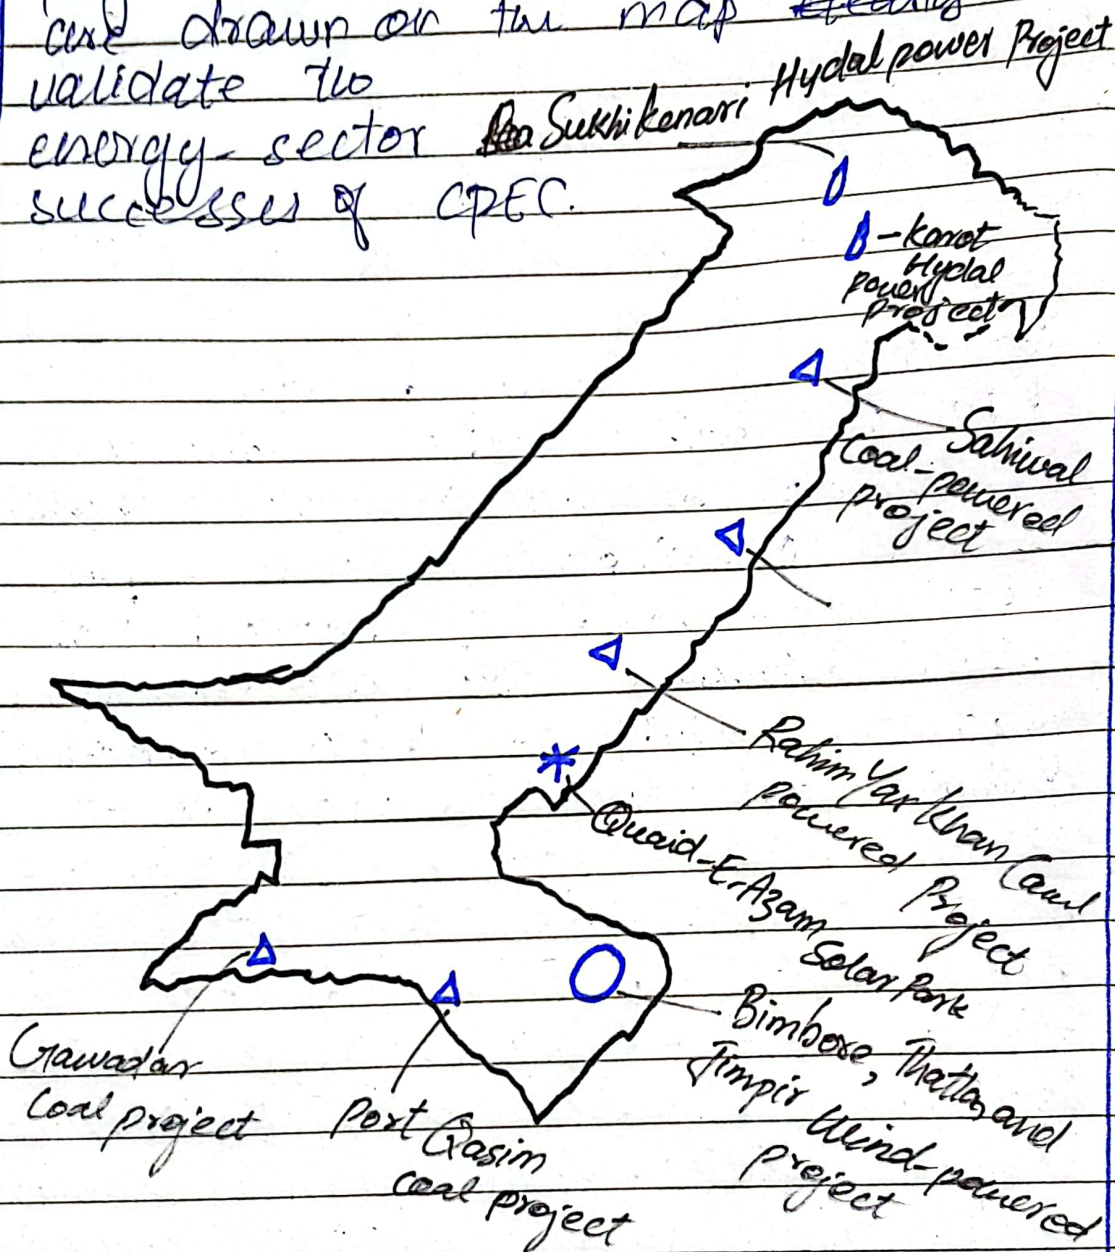 are drawn on the map
validate the
energy-sector
successes of CPEC.
Sukhi Kenari Hydal power Project
- Karot
Hydal
power
project
Sahiwal
Coal-powered
project
Rahim Yar Khan Coal
powered Project
Quaid-E-Azam
Solar Park
Bimbore, Thatta, and
Jimpir Wind-powered
project
Gawadar
Coal project
Port Qasim
coal project